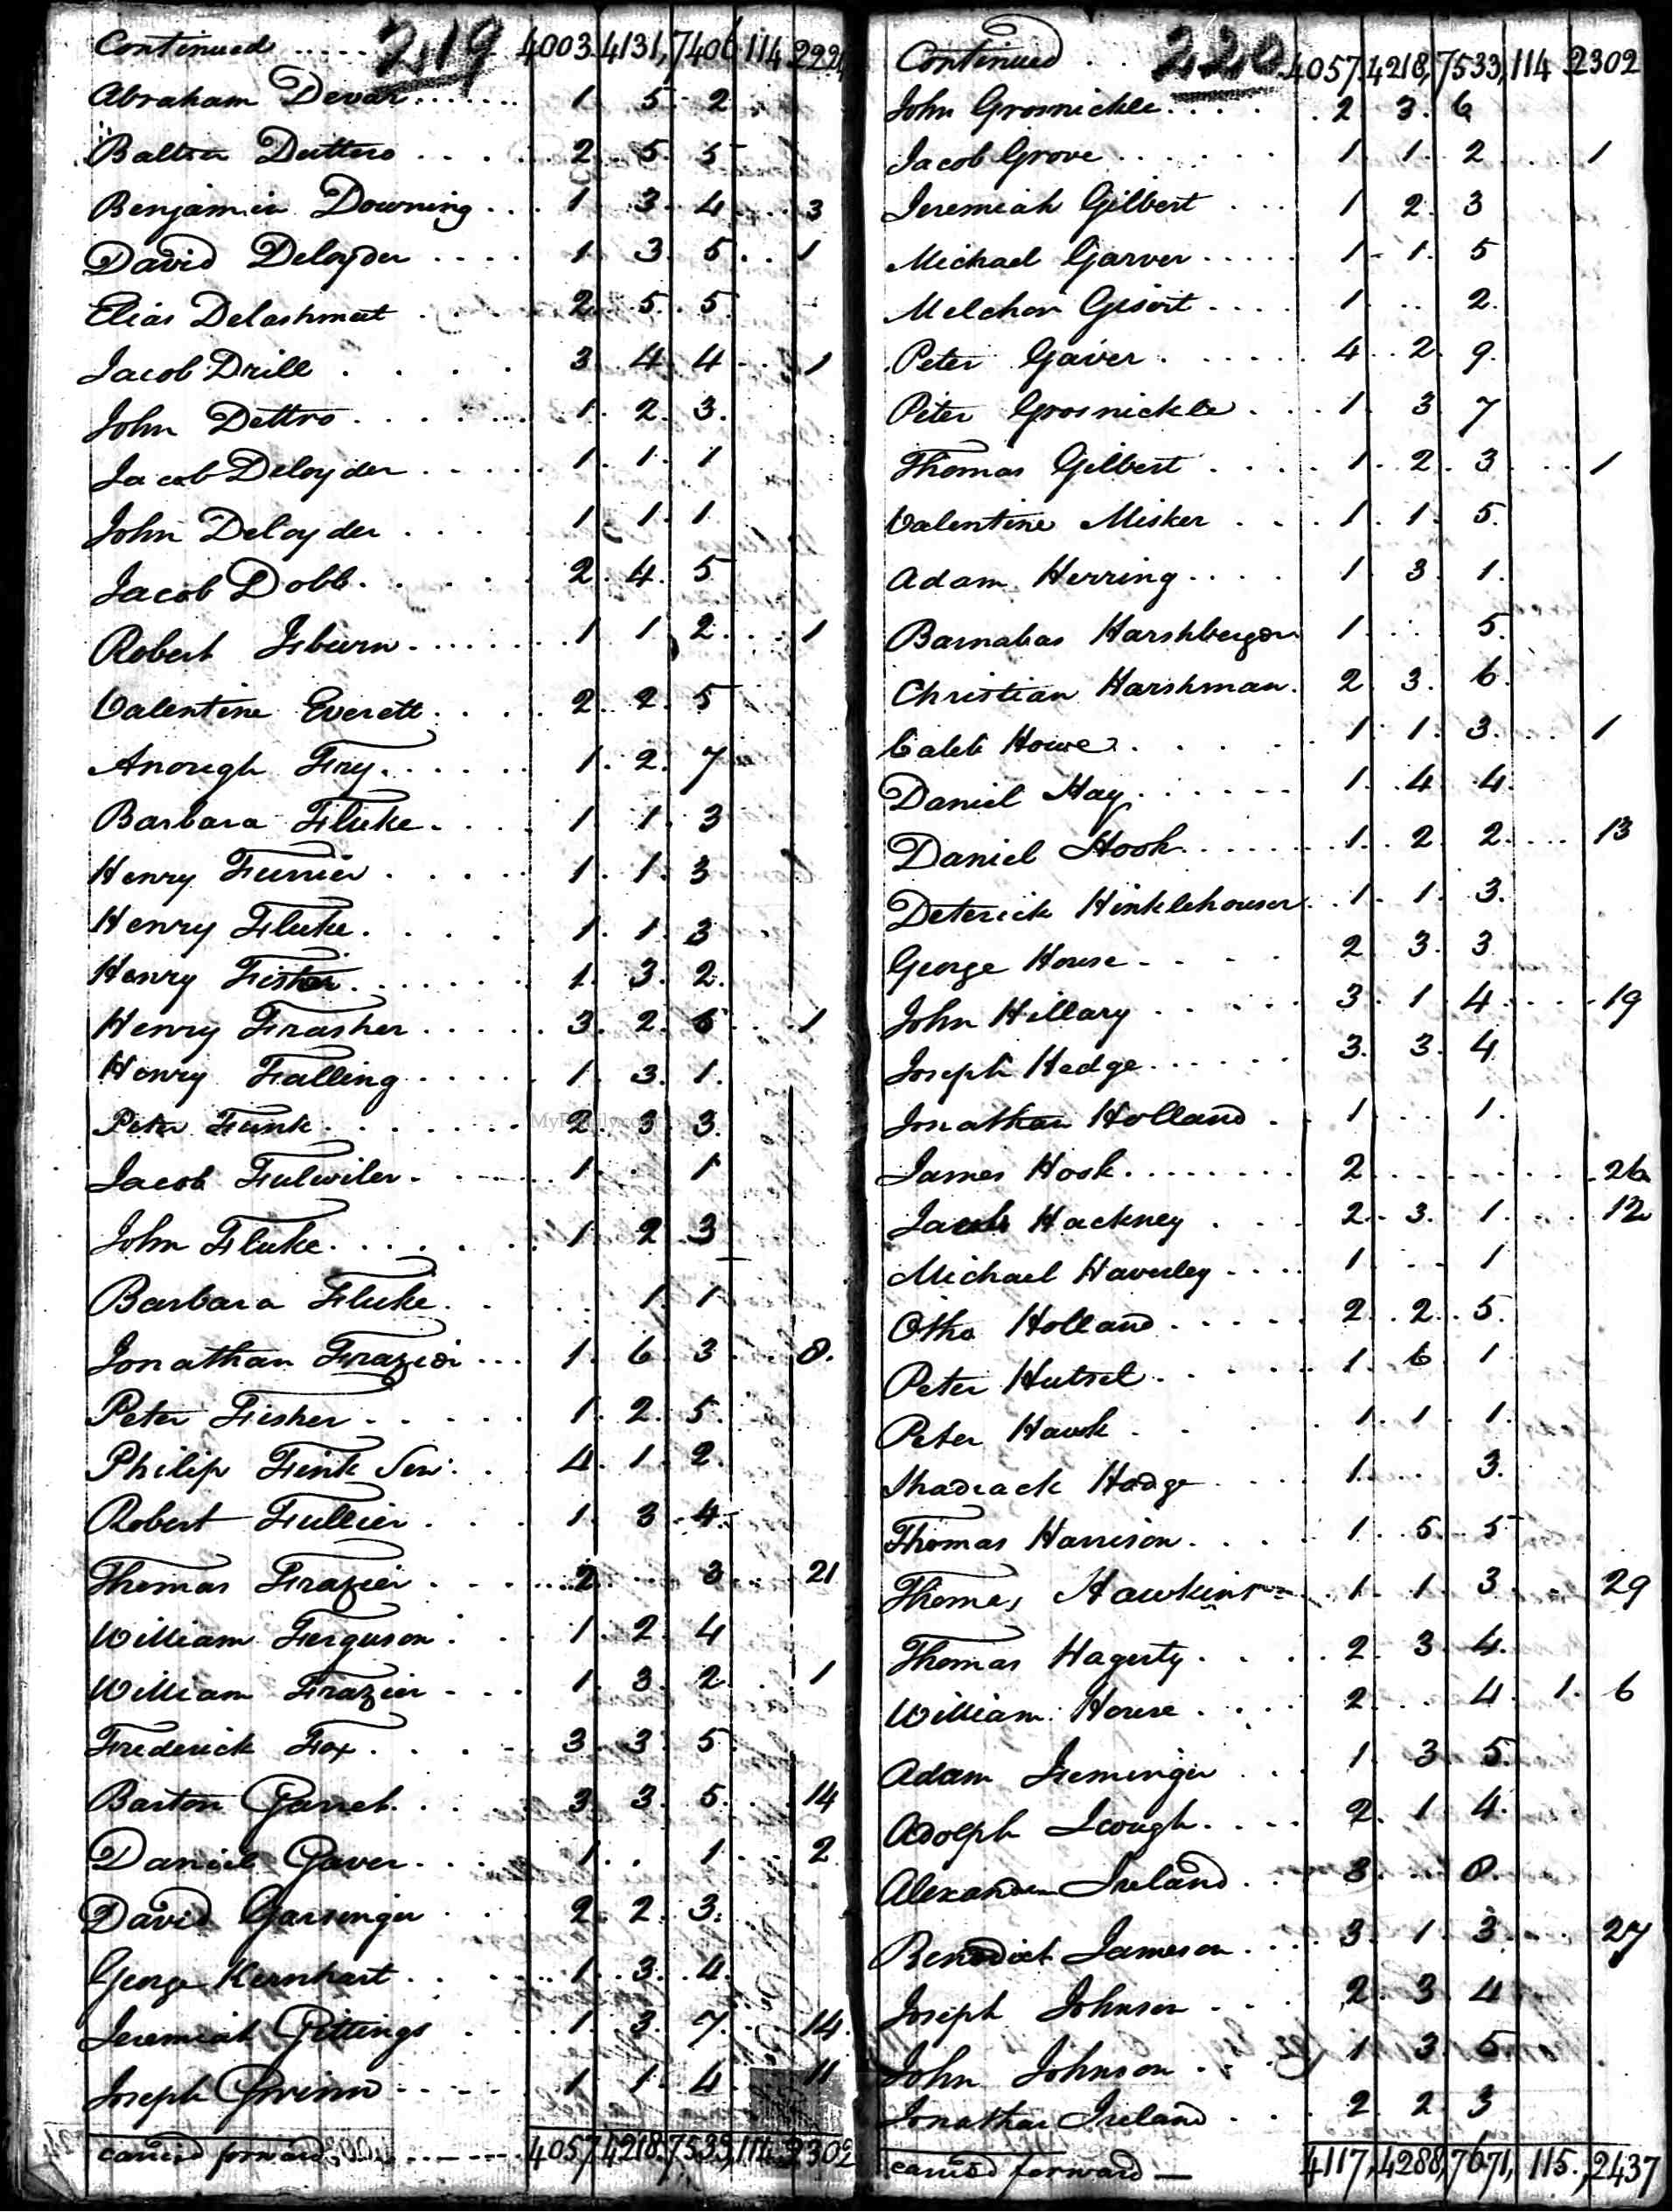 Continued ..... 219 4003. 4131, 7406 114 222
Abraham Devar ....... 1 5 2
Balser Duttero .... 2 5 5
Benjamin Downing ... 1 3 4 ... 3
David Deloyder .... 1 3 5 .. 1
Elias Delashmut ... 2 5 5
Jacob Drill .... 3 4 4 .. 1
John Dettro ...... 1 2 3
Jacob Deloyder ..... 1 1 1
John Deloyder .... 1 1 1
Jacob Dobb ..... 2 4 5
Robert ....... 1 1 2 ... 1
Valentine Everett .... 2 2 5
Fry ...... 1 2 7
Barbara Fluke .... 1 1 3
Henry ..... 1 1 3
Henry Fluke ..... 1 1 3
Henry Fisher ....... 1 3 2
Henry Frasher ..... 3 2 6 .. 1
Henry Falling .... 1 3 1
Peter Funk ....... 2 3 3
Jacob Fulwiler ..... 1 . 1
John Fluke ...... 1 2 3
Barbara Fluke ... 1 1
Jonathan Frazier ... 1 6 3 .. 8
Peter Fisher ..... 1 2 5
Philip Fink Sen: .. 4 1 2
Robert Fullier ... 1 3 4
Thomas Frazier ..... 2 .. 3 .. 21
William Ferguson .. 1 2 4
William Frazier ... 1 3 2 . 1
Frederick Fox .... 3 3 5
Barton Garret ... 3 3 5 ... 14
Daniel Gaver .... 1 .. 1 ... 2
David Garsinger ... 2 2 3
George Kernhart .... 1 3 4
Jeremiah Gittings ... 1 3 7 .. 14
Joseph Gwinn ..... 1 1 4 11
carried forward ....... 4057, 4218, 7533, 114 2302
Continued .. 220 4057. 4218, 7533, 114 2302
John Grosnickle .... 2 3 6
Jacob Grove ...... 1 1 2 ... 1
Jeremiah Gilbert ... 1 2 3
Michael Garver ..... 1 1 5
Melchor Gisort .... 1 .. 2
Peter Gaver ...... 4 2 9
Peter Grosnickle ... 1 3 7
Thomas Gilbert .... 1 2 3 ... 1
Valentine Misker ... 1 1 5
Adam Herring .... 1 3 1
Barnabas Harshberger 1 .. 5
Christian Harshman . 2 3 6
Caleb Howe ..... 1 1 3 ... 1
Daniel Hay ...... 1 4 4
Daniel Hook ....... 1 2 2 .... 13
Deterick Hinklehouser .. 1 1 3
George House .... 2 3 3
John Hillary ..... 3 1 4 .... 19
Joseph Hedge ...... 3 3 4
Jonathan Holland . 1 .. 1
James Hook ........ 2 ....... 26
Hackney ... 2 3 1 ... 12
Michael Haverley .... 1 .. 1
Otho Holland ..... 2 2 5
Peter Hutsel ..... 1 6 1
Peter Hawk ... 1 1 1
Shadrack Hodge .... 1 ... 3
Thomas Harrison .... 1 5 5
Thomas Hawkins .. 1 1 3 . 29
Thomas Hagerty .... 2 3 4
William House .... 2 .. 4 1 6
Adam ... 1 3 5
Adolph .... 2 1 4
Alexander Ireland .. 3 ... 8
Benedict Jameson .... 3 1 3 ... 27
Joseph Johnson ... 2 3 4
John Johnson .... 1 3 5
Jonathan Ireland ... 2 2 3
carried forward — 4117, 4288, 7671, 115, 2437